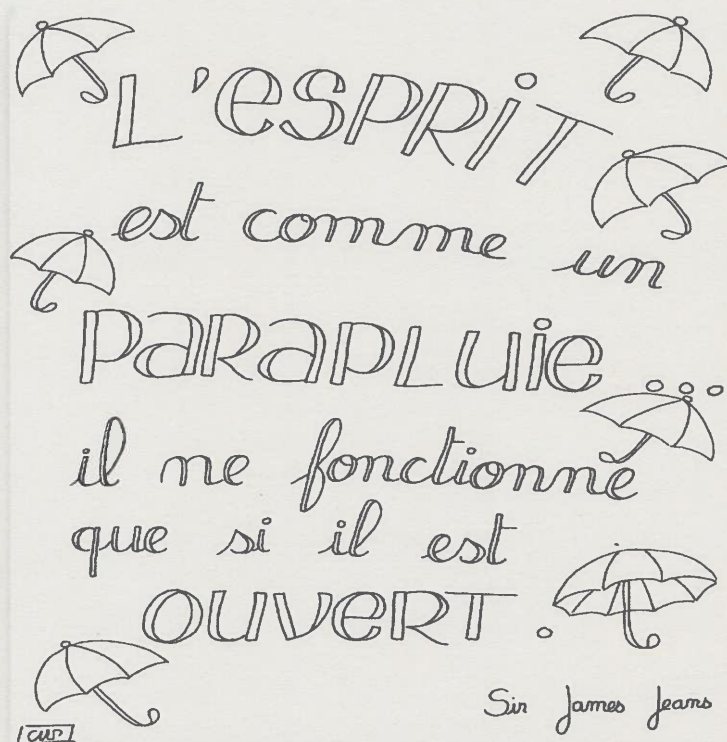 L'ESPRIT
est comme un
PARAPLUIE...
il ne fonctionne
que si il est
OUVERT.
Sir James Jeans